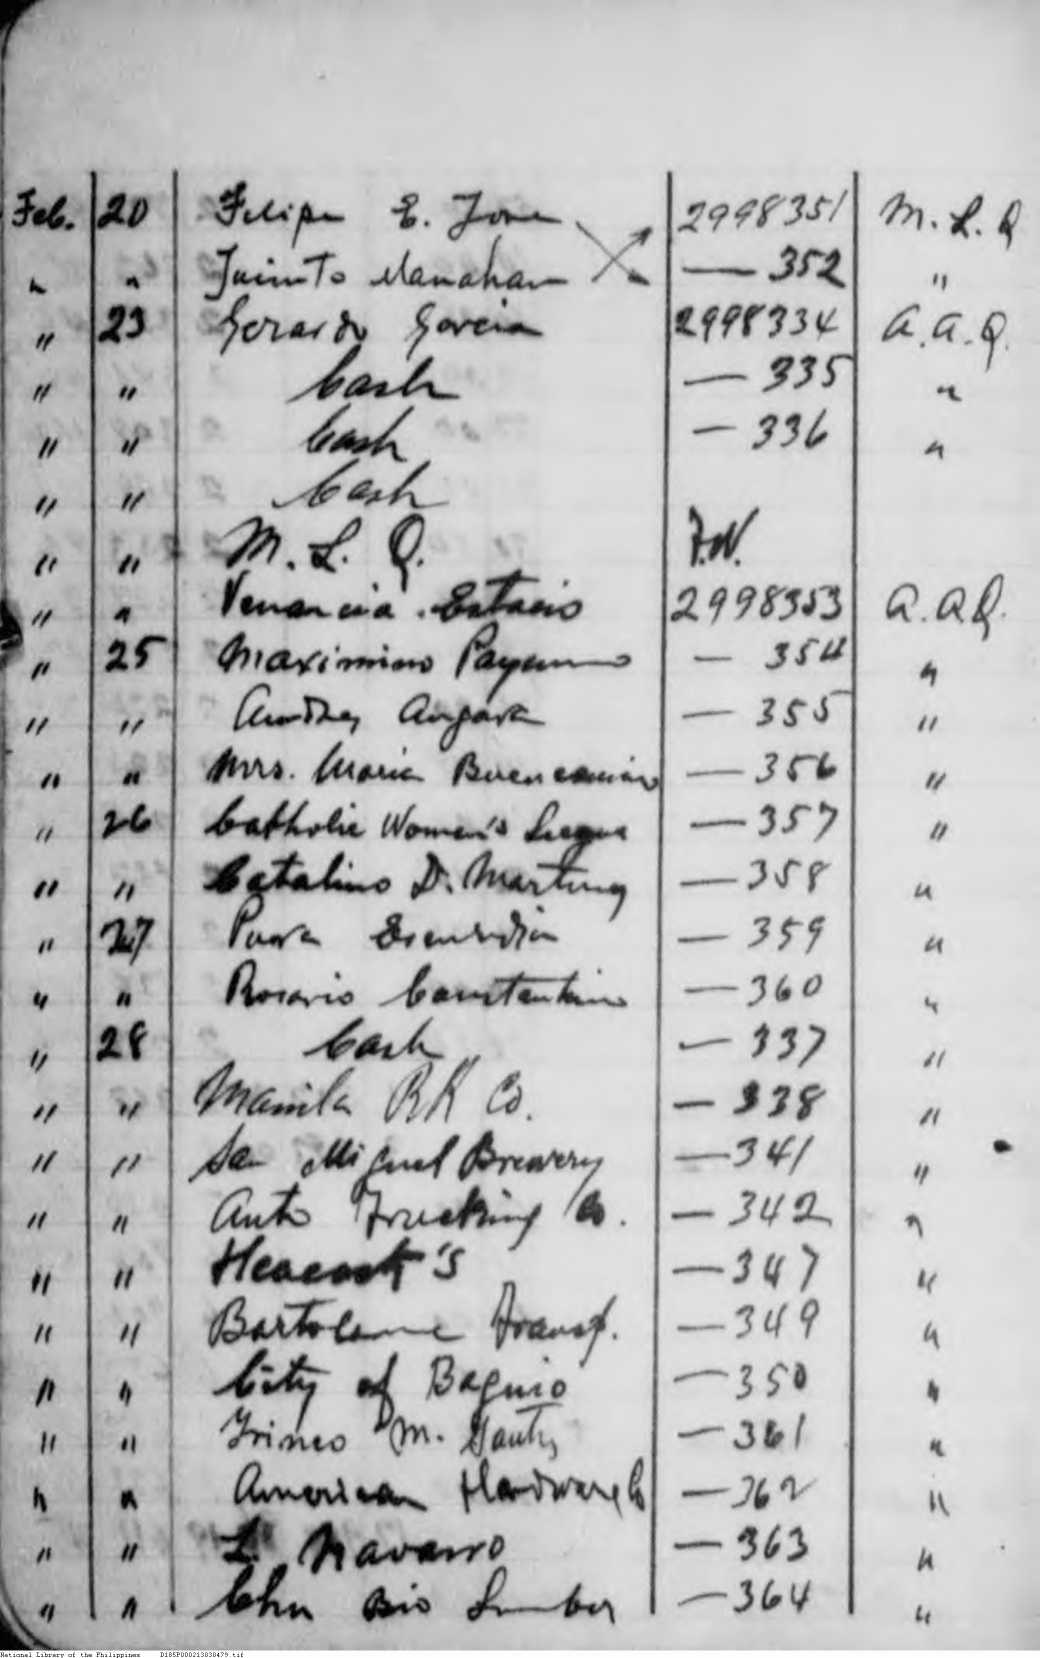 Feb. 20 Felipe E. Jose 2998351 M. L. Q
" " Jacinto Manahan — 352 "
" 23 Gerardo Garcia 2998334 A. A. Q.
" " Cash — 335 "
" " Cash — 336 "
" " Cash
" " M. L. Q.
" " Venancia Estacio 2998353 A. A Q.
" 25 Maximino — 354 "
" " Angara — 355 "
" " Mrs. Maria Buencamino — 356 "
" 26 Catholic Women's League — 357 "
" " Catalino D. — 358 "
" 27 — 359 "
" " Rosario Constantino — 360 "
" 28 Cash — 337 "
" " Manila RR Co. — 338 "
" " San Miguel Brewery — 341 "
" " Auto Trucking Co. — 342 "
" " Heacock's — 347 "
" " Bartolome Transp. — 349 "
" " City of Baguio — 350 "
" " Irineo M. — 361 "
" " American Hardware Co — 362 "
" " L. Navarro — 363 "
" " Chu Bio Lumber — 364 "
National Library of the Philippines D185P000213838479.tif